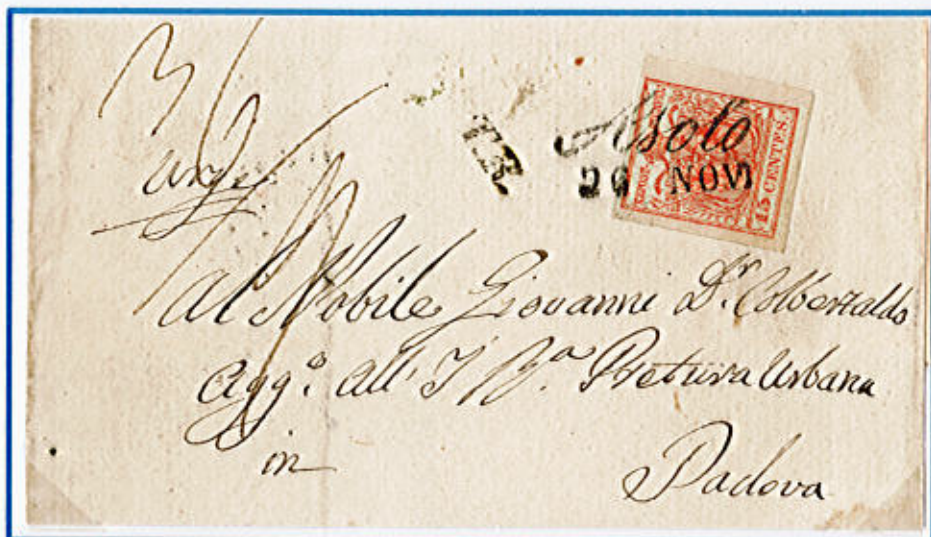 Asolo
26 NOV
15 CENTES.
al Nobile Giovanni Dr. Colbertaldo
Agg.o all' I R.a Pretura Urbana
in
Padova